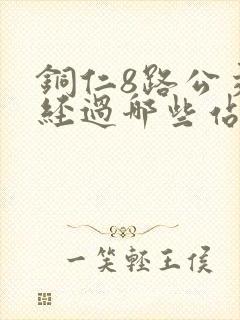 銅仁8路公交
經過哪些站
一笑輕王侯